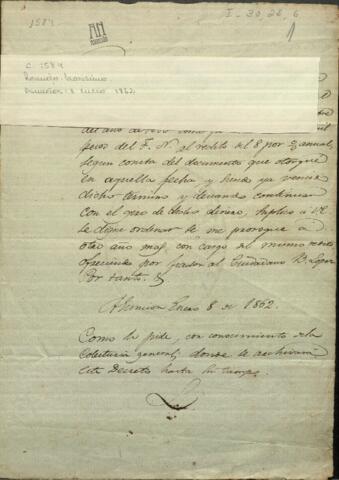 1584
I-30, 28, 6
1
AN
C. 1584
Asunción 8 Enero 1862
pesos del F. N. al redito del 8 por % anual,
segun consta del documento que otorgué
en aquella fecha y hace ya vencer
dicho termino y deseando continuar
con el giro de dicho dinero, suplico a V.E.
se digne ordenar se me prorogue a
otro año mas, con cargo del mismo redito
ofreciendo por fiador al Ciudadano B. Lopez
Por tanto. &
Asuncion Enero 8 de 1862.
Como lo pide, con conocimiento de la
Colecturia general, donde se archivará
este Decreto hasta su tiempo.